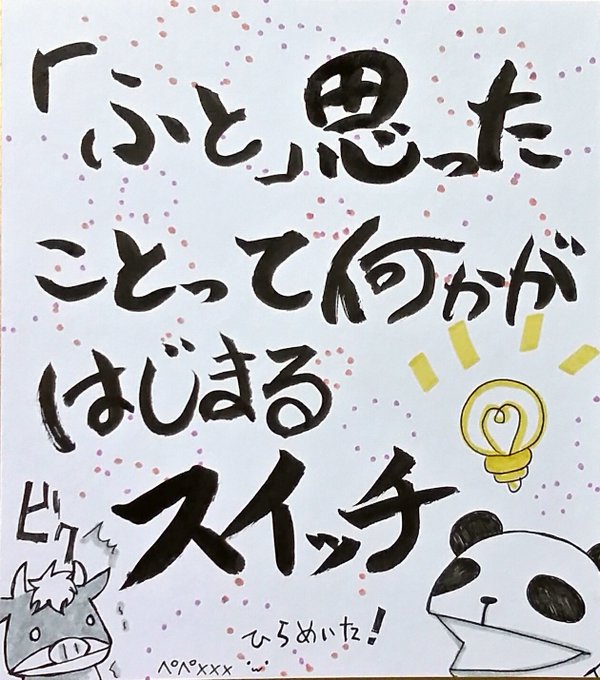 「ふと」思った
ことって何かが
はじまる
スイッチ
ビクッ
ひらめいた!
ペペxxx